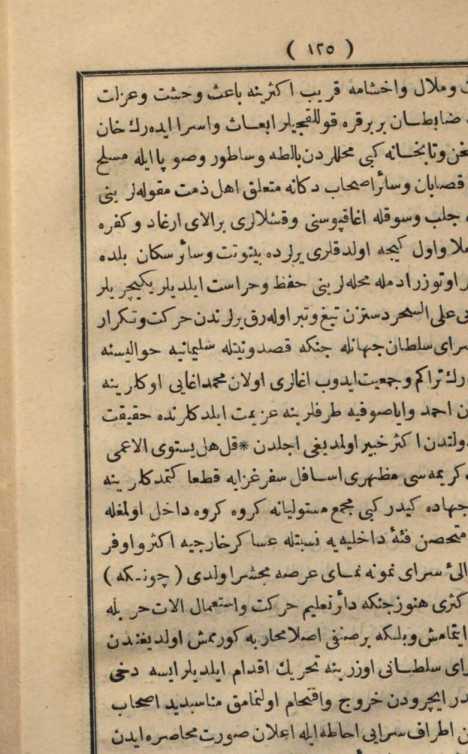 ( ١٢٥ )
وملال واخشامه قريب اكثرينه باعث وحشت وعزلت
ضابطان بربر قره قوللقجيلر ابعاث واسرا ايدهرك خان
وتابخانه كبى محللردن بالطه وساطور وصوپا ايله مسلح
قصابان وسائر اصحاب دكانه متعلق اهل ذمت مقولهلر ينى
جلب وسوقله اغاقپوسنى وقشلالرى برالاى ارغاد وكفره
واول كيجه اولدقلرى يرلرده بيتوتت وسائر سكان بلده
اوتوزر ادمله محلهلر ينى حفظ وحراست ايلديلر يكيچريلر
على السحر دستزن تيغ وتبر اولهرق يرلرندن حركت وتكرار
سراى سلطان جهانله جنكه قصد ونيتله سليمانيه حواليسنه
تراكم وجمعيت ايدوب اغالرى اولان محمد اغايى اوكلرينه
احمد واياصوفيه طرفلرينه عزيمت ايلدكلرنده حقيقت
دولتدن اكثر خبير اولمديغى اجلدن * قل هل يستوى الاعمى
كريمهسى مظهرى اسافل سفر غزايه قطعا كتمدكلرينه
جهاده كيدر كبى مجمع مستوليانه كروه كروه داخل اولمغله
متحصن فئه داخليهيه نسبتله عساكر خارجيه اكثر واوفر
سراى نمونه نماى عرصه محشر اولدى ( چونكه )
هنوز جنكه دائر تعليم حركت واستعمال الات حر بله
ايتمامش وبلكه برصنفى اصلا محاربه كورمش اولديغندن
سلطانى اوزرينه تحريك اقدام ايلديلر ايسه دخى
ايچرودن خروج واقتحام اولنمامق مناسبديد اصحاب
اطراف سرايى احاطه ايله اعلان صورت محاصره ايدن